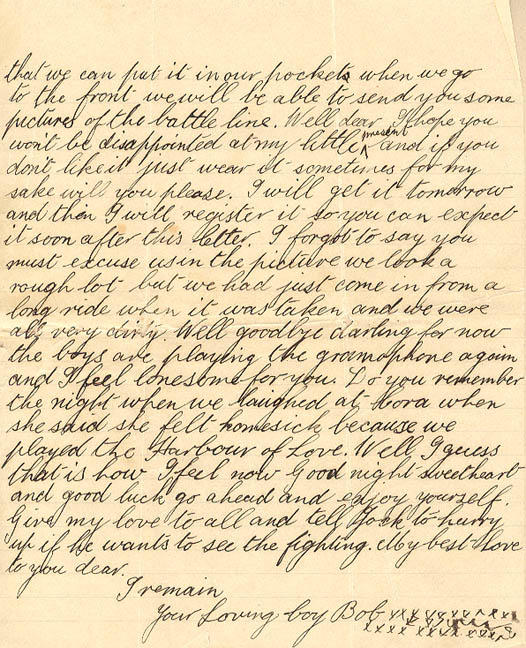 that we can put it in our pockets when we go
to the front we will be able to send you some
pictures of the battle line. Well dear I hope you
won't be disappointed at my little present and if you
don't like it just wear it sometimes for my
sake will you please. I will get it tomorrow
and then I will register it so you can expect
it soon after this letter. I forgot to say you
must excuse us in the picture we look a
rough lot but we had just come in from a
long ride when it was taken and we were
all very dirty. Well goodbye darling for now
the boys are playing the gramophone again
and I feel lonesome for you. Do you remember
the night when we laughed at Cora when
she said she felt homesick because we
played the Harbour of Love. Well I guess
that is how I feel now Good night sweetheart
and good luck go ahead and enjoy yourself.
Give my love to all and tell Jock to hurry
up if he wants to see the fighting. My best love
to you dear.
I remain
Your Loving boy Bob